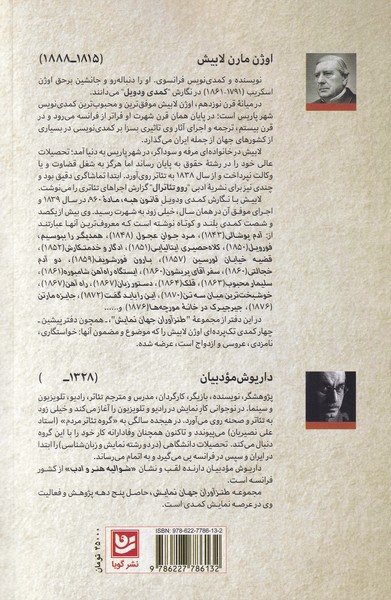 اوژن مارن لابیش (۱۸۱۵ــ۱۸۸۸)
نویسنده و کمدی‌نویس فرانسوی. او را دنباله‌رو و جانشین برحق اوژن
اسکریب (۱۷۹۱ـ۱۸۶۱) در نگارش «کمدی ودویل» می‌دانند.
در میانهٔ قرن نوزدهم، اوژن لابیش موفق‌ترین و محبوب‌ترین کمدی‌نویس
شهر پاریس است؛ در پایان همان قرن شهرت او فراتر از فرانسه می‌رود و در
قرن بیستم، ترجمه و اجرای آثار وی تاثیری بسزا بر کمدی‌نویسی در بسیاری
از کشورهای جهان از جمله ایران می‌گذارد.
لابیش در خانواده‌ای مرفه و سوداگر، در شهر پاریس به دنیا آمد؛ تحصیلات
عالی خود را در رشتهٔ حقوق به پایان رساند اما هرگز به شغل قضاوت و یا
وکالت نپرداخت و از سال ۱۸۳۸ به تئاتر روی‌آورد. ابتدا تماشاگری دقیق بود و
چندی نیز برای نشریهٔ ادبی "روو تئاترال" گزارش اجراهای تئاتری را می‌نوشت.
لابیش با نگارش کمدی ودویل قانون هبه، مادهٔ ۸۶۰ در سال ۱۸۳۹ و
اجرای موفق آن در همان سال، خیلی زود به شهرت رسید. وی بیش از یکصد
و شصت کمدی بلند و کوتاه نوشته است که معروف‌ترین آنها عبارتند
از: آدم پوشالی (۱۸۴۳)، مرد جوان عجول (۱۸۴۸)، همدیگر را ببوسیم،
فورویل (۱۸۵۰)، کلاه‌حصیری ایتالیایی (۱۸۵۱)، ادگار و خدمتکارش (۱۸۵۲)،
قضیه خیابان لورسین (۱۸۵۷)، بارون فورشویف (۱۸۵۹)، دو آدم
خجالتی (۱۸۶۰)، سفر آقای پریشون (۱۸۶۰)، ایستگاه راه‌آهن شامبوره (۱۸۶۱)،
سلیمار محبوب (۱۸۶۳)، قلک (۱۸۶۴)، دستور زبان (۱۸۶۷)، راه آهن (۱۸۶۷)،
خوشبخت‌ترین میان سه تن (۱۸۷۰)، این را باید گفت (۱۸۷۲)، جایزه مارتن
(۱۸۷۶)، جیرجیرک در خانهٔ مورچه‌ها (۱۸۷۶) و......
در این دفتر از مجموعهٔ "طنزآوران جهان نمایش"، ـ همچون دفتر پیشین ـ
چهار کمدی تک‌پرده‌ای اوژن لابیش را که موضوع و مضمون آنها: خواستگاری،
نامزدی، عروسی و ازدواج است، عرضه شده.
داریوش مؤدبیان (۱۳۲۸ــ )
پژوهشگر، نویسنده، بازیگر، کارگردان، مدرس و مترجم تئاتر، رادیو، تلویزیون
و سینما. در نوجوانی کار نمایش در رادیو و تلویزیون را آغاز می‌کند و خیلی زود
به تئاتر و صحنه روی می‌آورد. در هیجده سالگی به «گروه تئاتر مردم» (استاد
علی نصیریان) می‌پیوندد و تاکنون همچنان وفادارانه کار خود را با این گروه
دنبال می‌کند. تحصیلات دانشگاهی (در دو رشته نمایش و زبان‌شناسی) را ابتدا
در ایران و سپس در فرانسه پی می‌گیرد و به اتمام می‌رساند.
داریوش مؤدبیان دارنده لقب و نشان «شوالیه هنر و ادب» از کشور
فرانسه است.
مجموعه طنزآوران جهان نمایش، حاصل پنج دهه پژوهش و فعالیت
وی در عرصه نمایش کمدی است.
ISBN: 978-622-7786-13-2
9 786227 786132
۴۵۰۰۰ تومان
نشر گویا